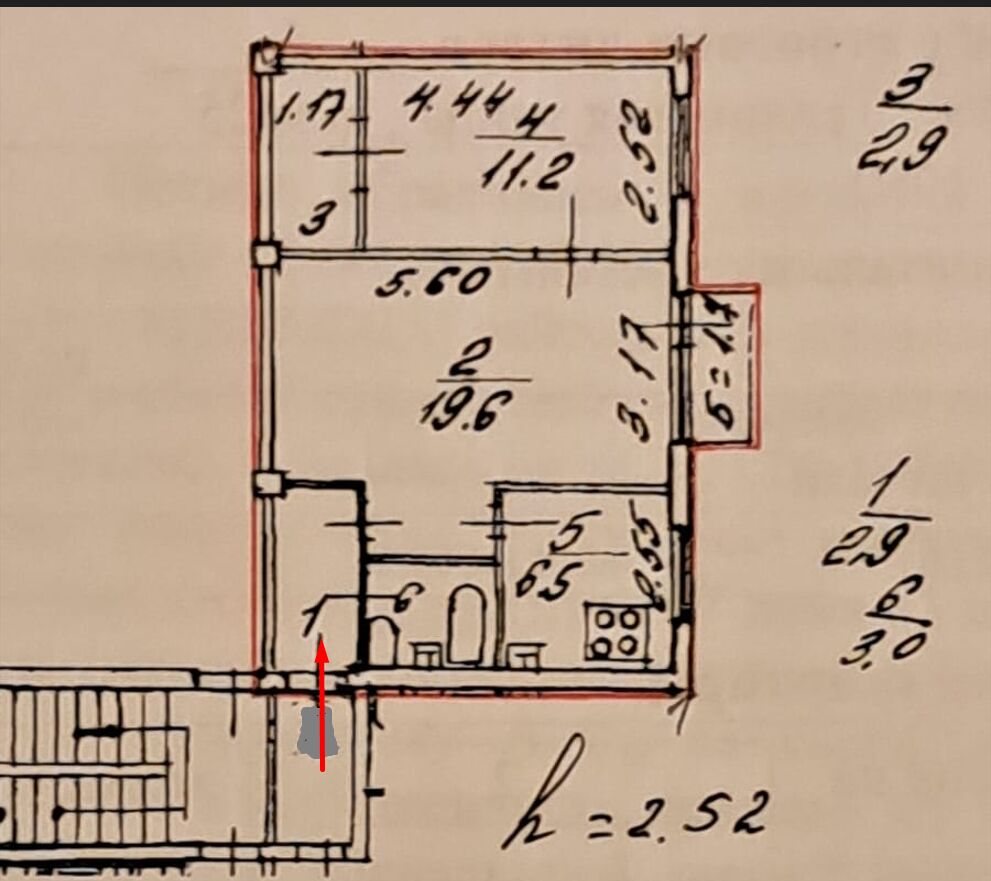 1.17
4.44
4
11.2
2.52
3
5.60
2
19.6
3.17
Б = 1.7
5
6.5
2.55
1
6
3
2,9
1
2,9
6
3,0
h = 2.52